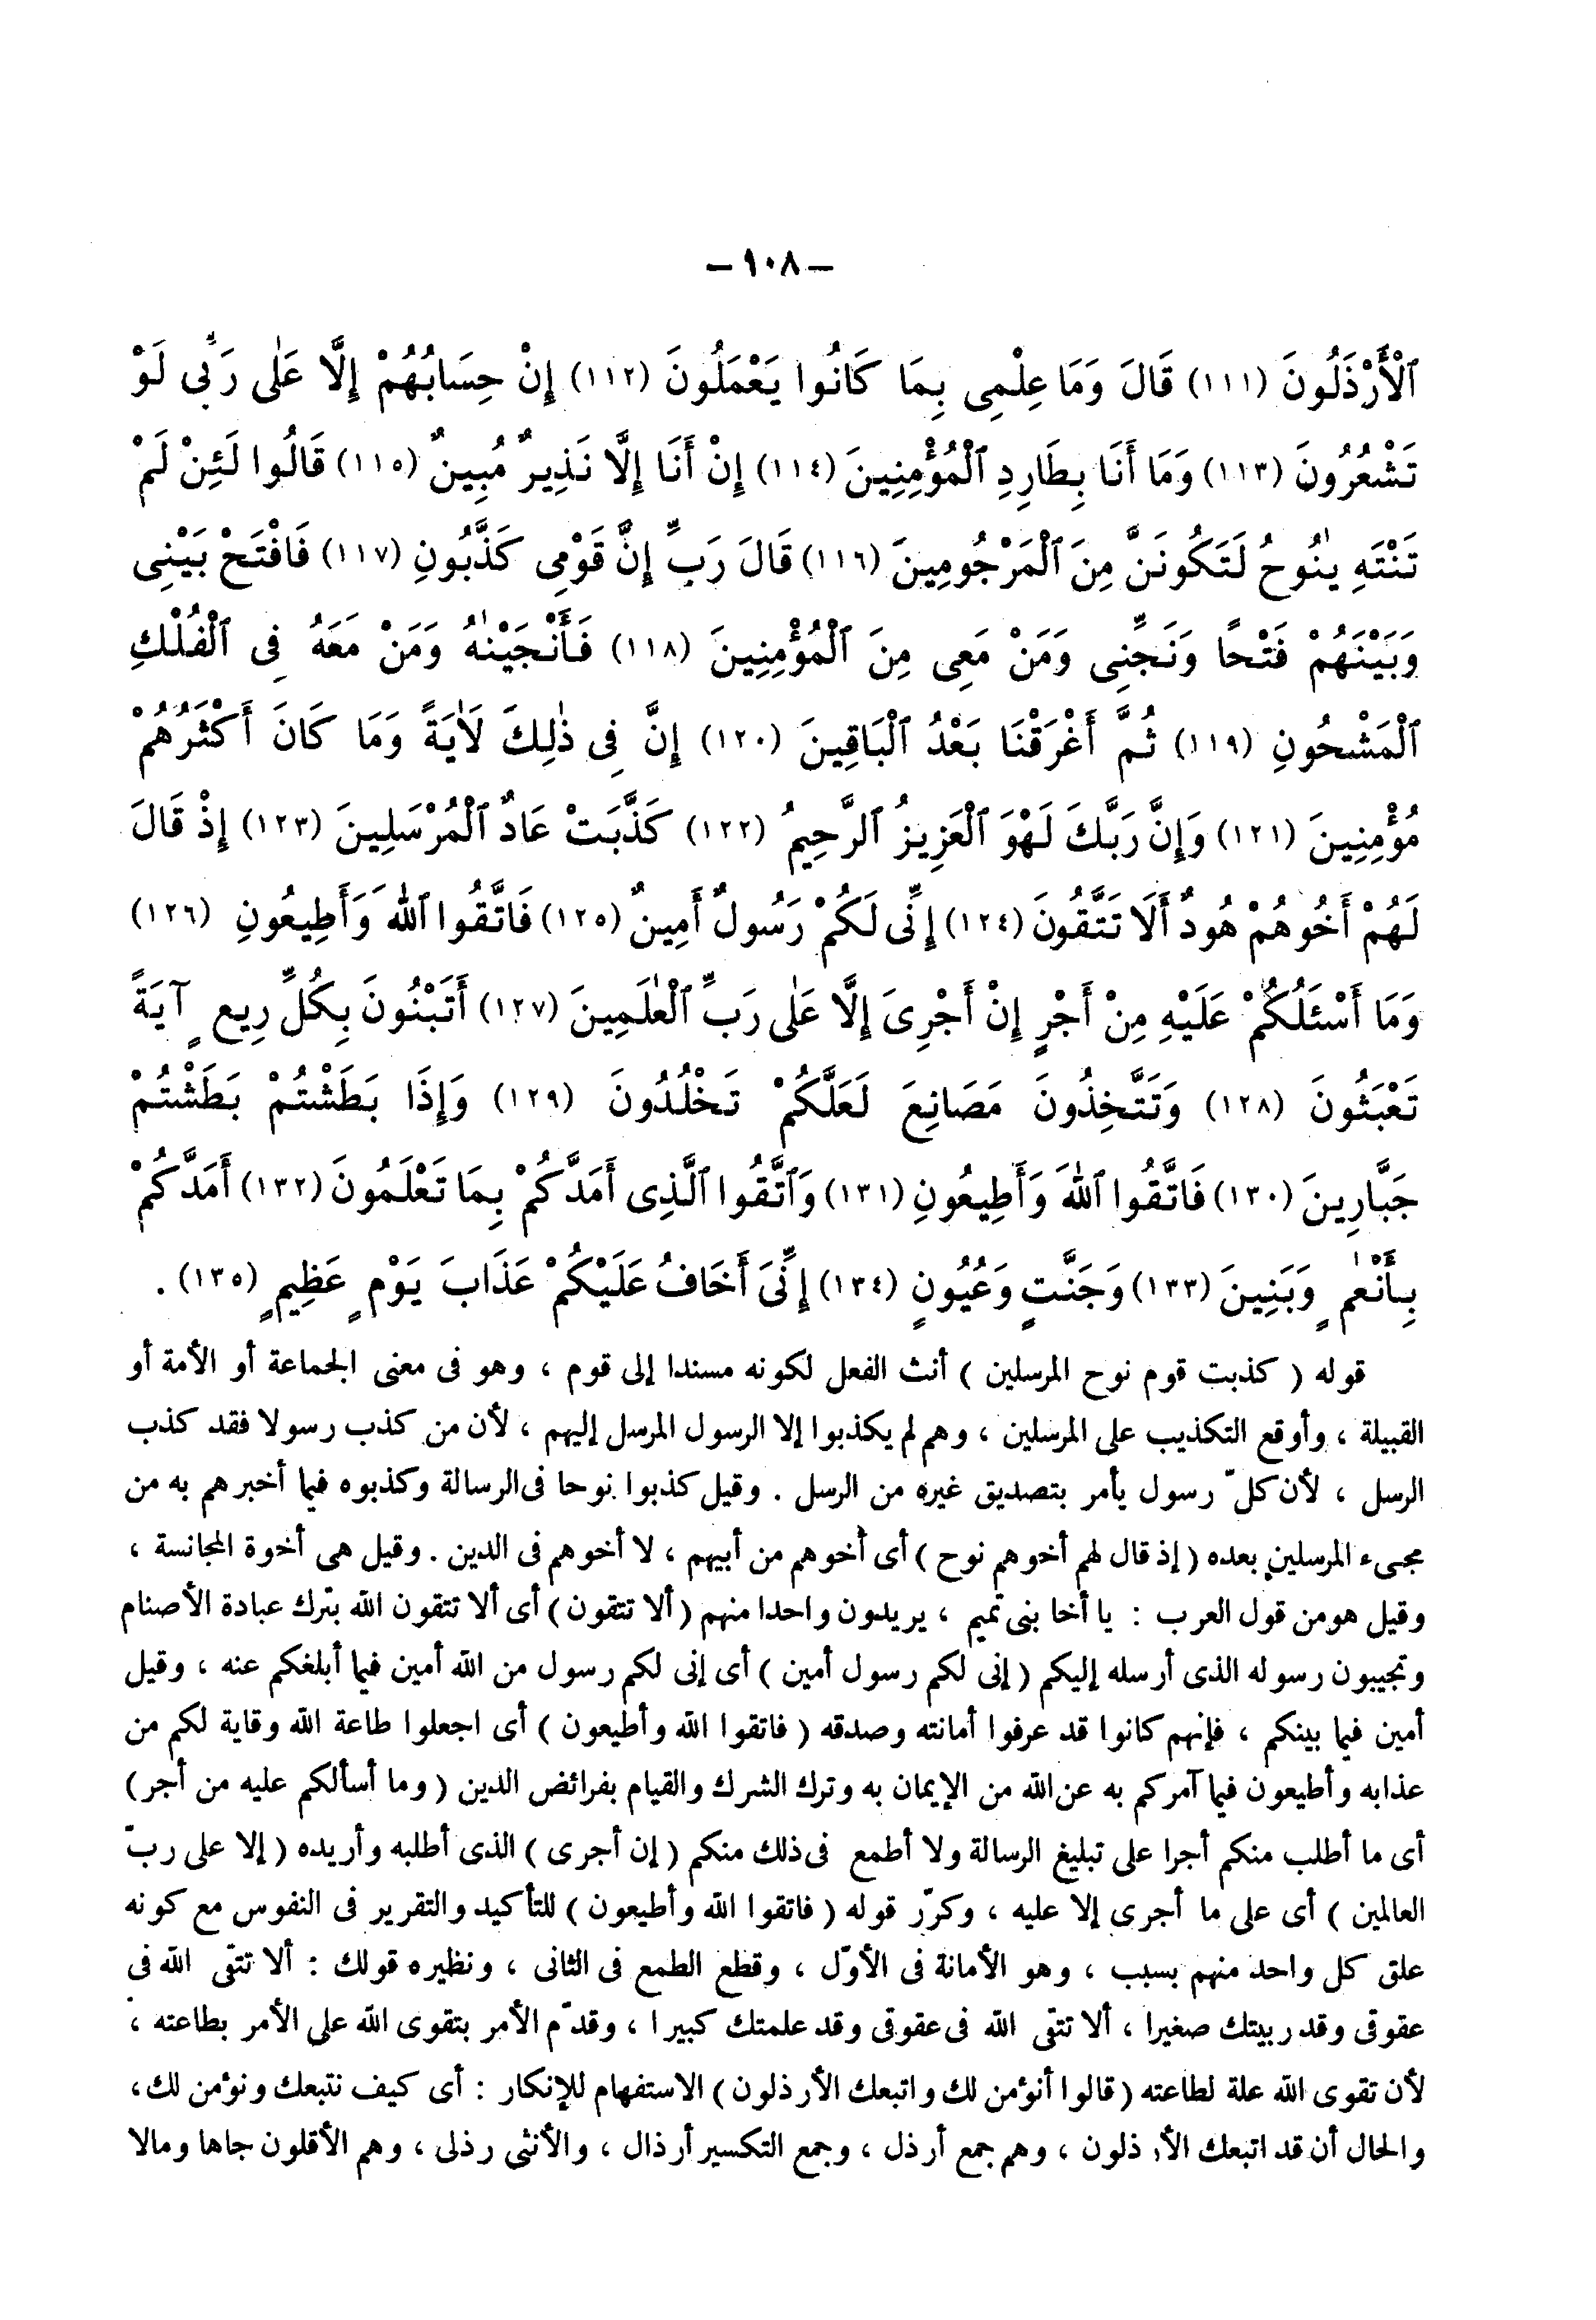 — ١٠٨ —
ٱلْأَرْذَلُونَ (١١١) قَالَ وَمَا عِلْمِى بِمَا كَانُوا يَعْمَلُونَ (١١٢) إِنْ حِسَابُهُمْ إِلَّا عَلٰى رَبِّى لَوْ
تَشْعُرُونَ (١١٣) وَمَا أَنَا بِطَارِدِ ٱلْمُؤْمِنِينَ (١١٤) إِنْ أَنَا إِلَّا نَذِيرٌ مُبِينٌ (١١٥) قَالُوا لَئِنْ لَمْ
تَنْتَهِ يٰنُوحُ لَتَكُونَنَّ مِنَ ٱلْمَرْجُومِينَ (١١٦) قَالَ رَبِّ إِنَّ قَوْمِى كَذَّبُونِ (١١٧) فَافْتَحْ بَيْنِى
وَبَيْنَهُمْ فَتْحًا وَنَجِّنِى وَمَنْ مَعِى مِنَ ٱلْمُؤْمِنِينَ (١١٨) فَأَنْجَيْنٰهُ وَمَنْ مَعَهُ فِى ٱلْفُلْكِ
ٱلْمَشْحُونِ (١١٩) ثُمَّ أَغْرَقْنَا بَعْدُ ٱلْبَاقِينَ (١٢٠) إِنَّ فِى ذٰلِكَ لَاٰيَةً وَمَا كَانَ أَكْثَرُهُمْ
مُؤْمِنِينَ (١٢١) وَإِنَّ رَبَّكَ لَهْوَ ٱلْعَزِيزُ ٱلرَّحِيمُ (١٢٢) كَذَّبَتْ عَادٌ ٱلْمُرْسَلِينَ (١٢٣) إِذْ قَالَ
لَهُمْ أَخُوهُمْ هُودٌ أَلَا تَتَّقُونَ (١٢٤) إِنِّى لَكُمْ رَسُولٌ أَمِينٌ (١٢٥) فَاتَّقُوا ٱللّٰهَ وَأَطِيعُونِ (١٢٦)
وَمَا أَسْئَلُكُمْ عَلَيْهِ مِنْ أَجْرٍ إِنْ أَجْرِىَ إِلَّا عَلٰى رَبِّ ٱلْعٰلَمِينَ (١٢٧) أَتَبْنُونَ بِكُلِّ رِيعٍ آيَةً
تَعْبَثُونَ (١٢٨) وَتَتَّخِذُونَ مَصَانِعَ لَعَلَّكُمْ تَخْلُدُونَ (١٢٩) وَإِذَا بَطَشْتُمْ بَطَشْتُمْ
جَبَّارِينَ (١٣٠) فَاتَّقُوا ٱللّٰهَ وَأَطِيعُونِ (١٣١) وَٱتَّقُوا ٱلَّذِى أَمَدَّكُمْ بِمَا تَعْلَمُونَ (١٣٢) أَمَدَّكُمْ
بِأَنْعٰمٍ وَبَنِينَ (١٣٣) وَجَنّٰتٍ وَعُيُونٍ (١٣٤) إِنِّىَ أَخَافُ عَلَيْكُمْ عَذَابَ يَوْمٍ عَظِيمٍ (١٣٥) .
قوله ( كذبت قوم نوح المرسلين ) أنث الفعل لكونه مسندا إلى قوم ، وهو فى معنى الجماعة أو الأمة أو
القبيلة ، وأوقع التكذيب على المرسلين ، وهم لم يكذبوا إلا الرسول المرسل إليهم ، لأن من كذب رسولا فقد كذب
الرسل ، لأن كلّ رسول يأمر بتصديق غيره من الرسل . وقيل كذبوا نوحا فى الرسالة وكذبوه فيما أخبرهم به من
مجىء المرسلين بعده ( إذ قال لهم أخوهم نوح ) أى أخوهم من أبيهم ، لا أخوهم فى الدين . وقيل هى أخوة المجانسة ،
وقيل هو من قول العرب : يا أخا بنى تميم ، يريدون واحدا منهم ( ألا تتقون ) أى ألا تتقون الله بترك عبادة الأصنام
وتجيبون رسوله الذى أرسله إليكم ( إنى لكم رسول أمين ) أى إنى لكم رسول من الله أمين فيما أبلغكم عنه ، وقيل
أمين فيما بينكم ، فإنهم كانوا قد عرفوا أمانته وصدقه ( فاتقوا الله وأطيعون ) أى اجعلوا طاعة الله وقاية لكم من
عذابه وأطيعون فيما آمركم به عن الله من الإيمان به وترك الشرك والقيام بفرائض الدين ( وما أسألكم عليه من أجر )
أى ما أطلب منكم أجرا على تبليغ الرسالة ولا أطمع فى ذلك منكم ( إن أجرى ) الذى أطلبه وأريده ( إلا على ربّ
العالمين ) أى على ما أجرى إلا عليه ، وكرّر قوله ( فاتقوا الله وأطيعون ) للتأكيد والتقرير فى النفوس مع كونه
علق كل واحد منهم بسبب ، وهو الأمانة فى الأوّل ، وقطع الطمع فى الثانى ، ونظيره قولك : ألا تتقى الله فى
عقوقى وقد ربيتك صغيرا ، ألا تتقى الله فى عقوقى وقد علمتك كبيرا ، وقدّم الأمر بتقوى الله على الأمر بطاعته ،
لأن تقوى الله علة لطاعته ( قالوا أنؤمن لك واتبعك الأرذلون ) الاستفهام للإنكار : أى كيف نتبعك ونؤمن لك ،
والحال أن قد اتبعك الأرذلون ، وهم جمع أرذل ، وجمع التكسير أرذال ، والأنثى رذلى ، وهم الأقلون جاها ومالا